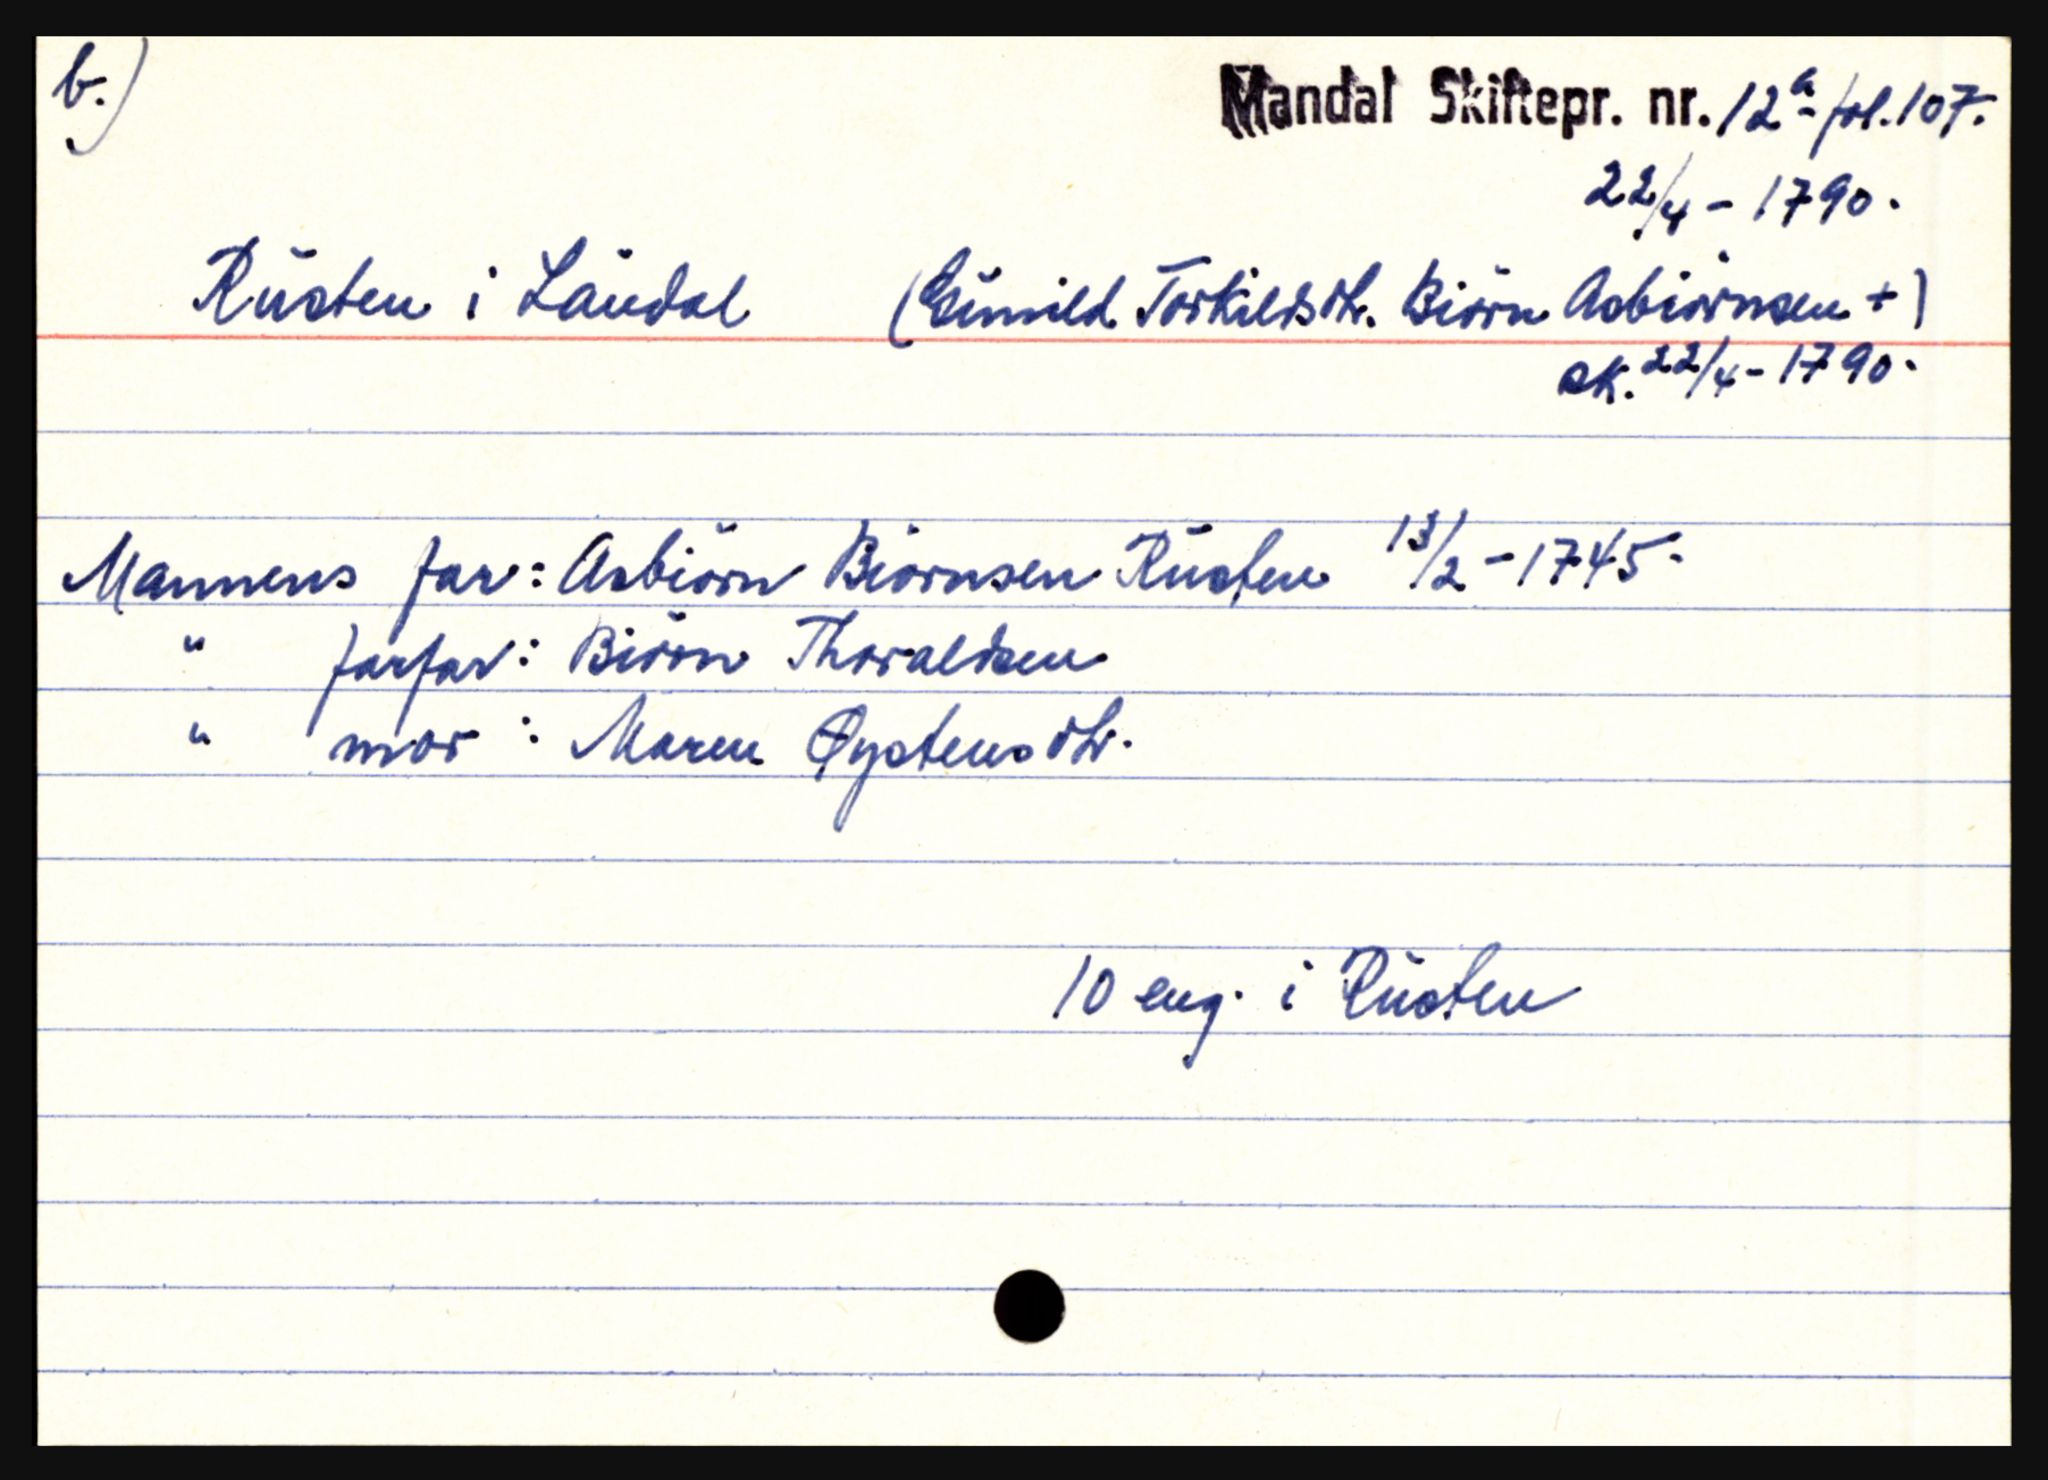 b.)
Mandal Skiftepr. nr. 12a- fol. 107.
22/4 - 1790.
Rüsten i Laudal (Gunild Torkildsdtr. Biörn Asbiörnsen +)
sk. 22/4 - 1790.
Mannens far: Asbiörn Biörnsen Rüsten 13/2 - 1745.
" farfar: Biörn Thoraldsen
" mor: Maren Øystensdtr.
10 eng. i Rüsten